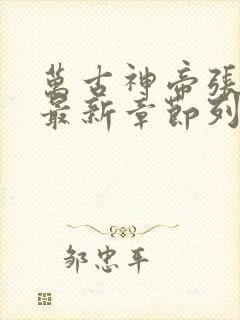 萬古神帝張
最新章節列
鄒忠平